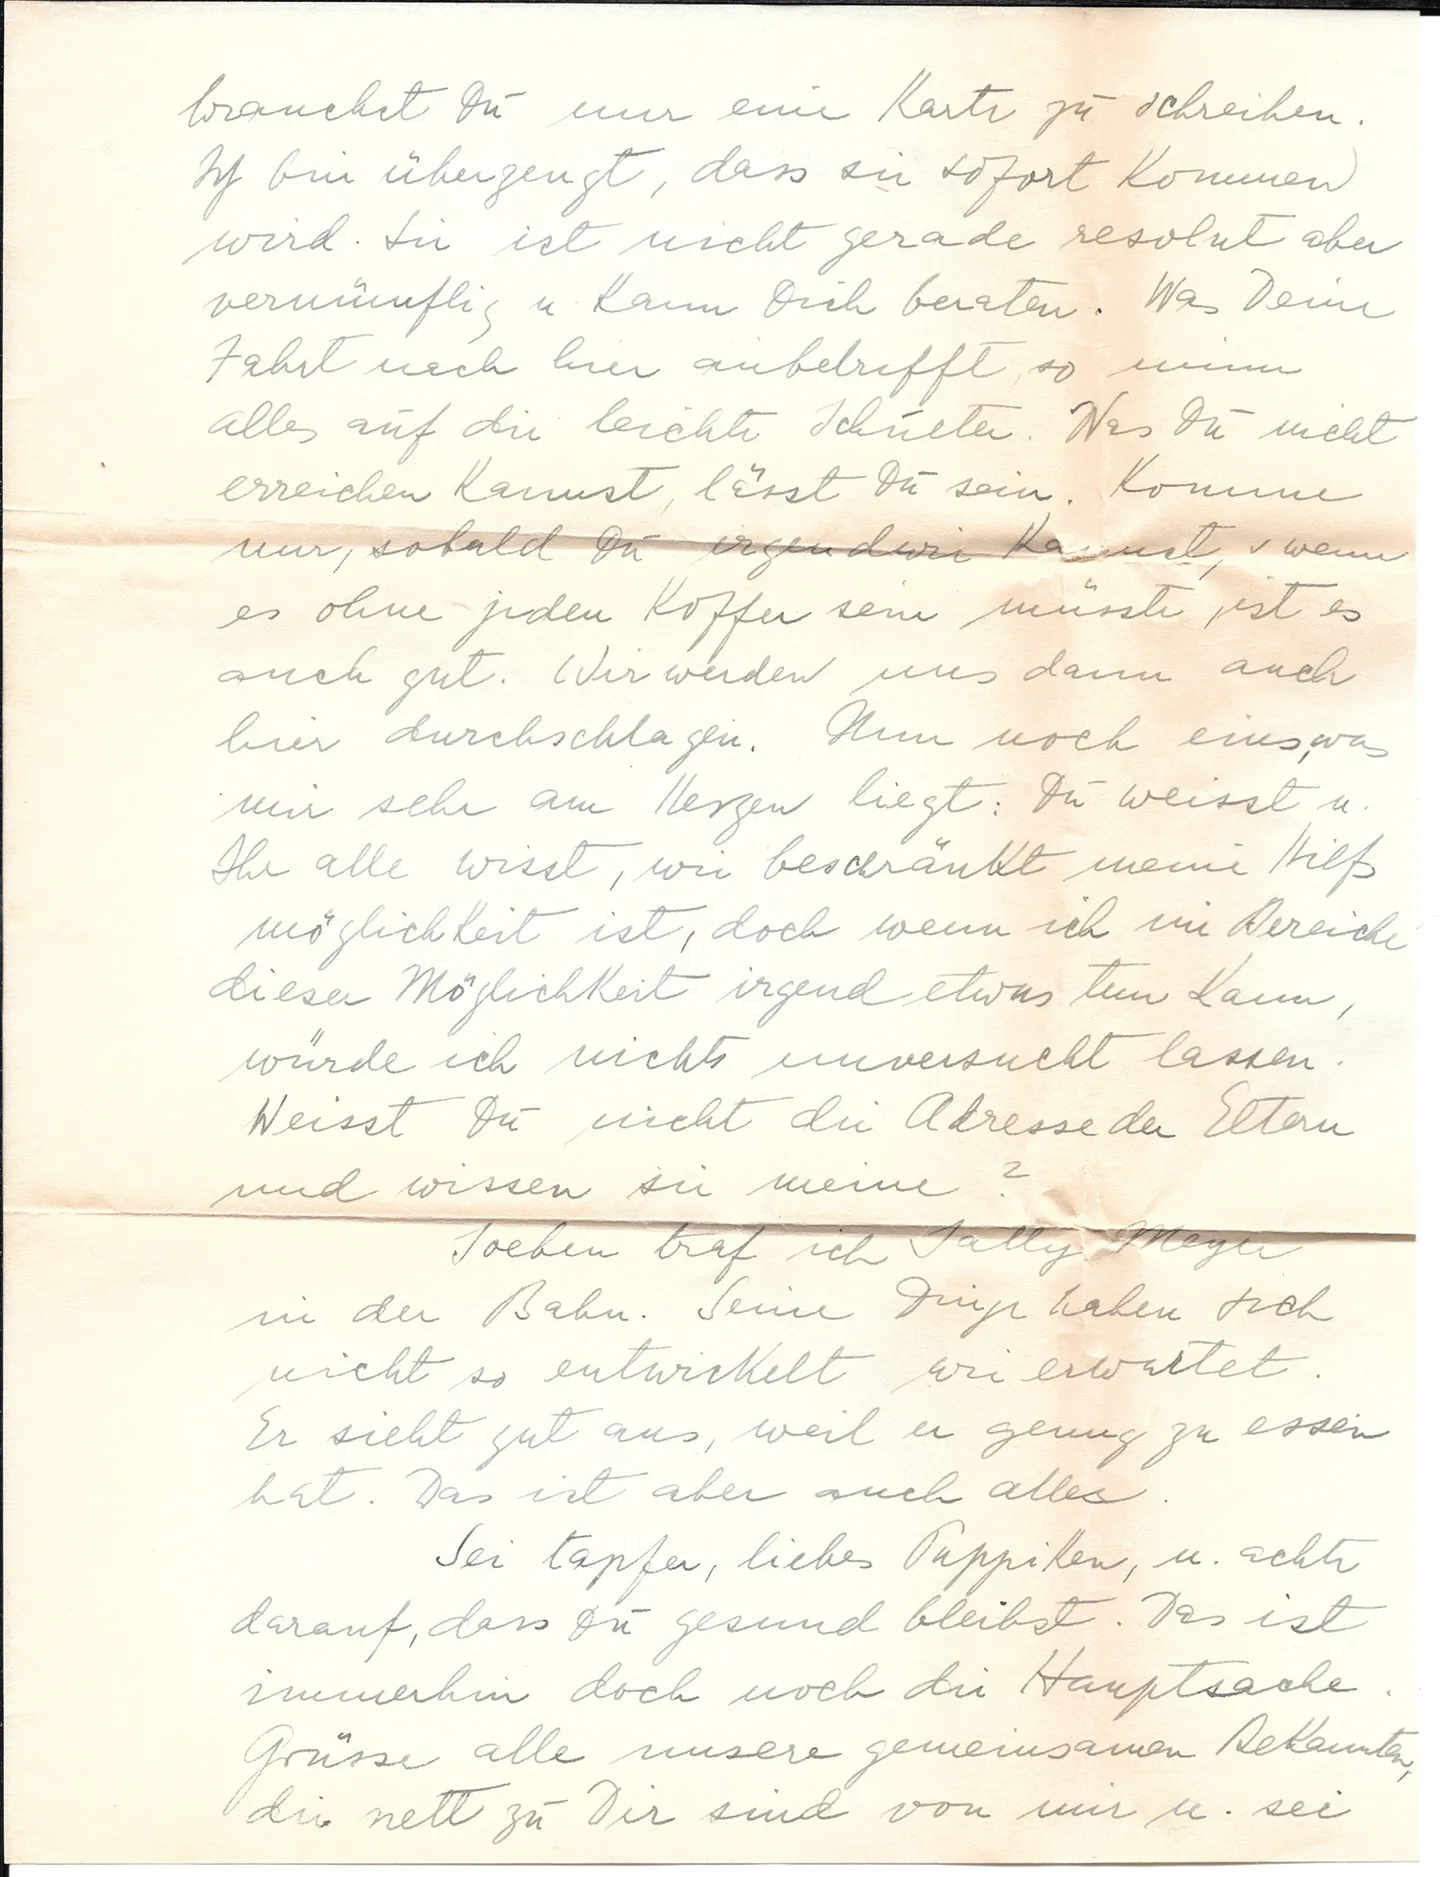 brauchst Du nur eine Karte zu schreiben.
Ich bin überzeugt, dass sie sofort kommen
wird. Sie ist nicht gerade resolut aber
vernünftig u kann Dich beraten. Was Deine
Fahrt nach hier anbetrifft, so nimm
alles auf die leichte Schulter. Was Du nicht
erreichen kannst, lässt Du sein. Komme
nur, sobald Du irgendwie kannst, wenn
es ohne jeden Koffer sein müsste, ist es
auch gut. Wir werden uns dann auch
hier durchschlagen. Nun noch eins, was
mir sehr am Herzen liegt: Du weisst u.
Ihr alle wisst, wie beschränkt meine Hilfs
möglichkeit ist, doch wenn ich im Bereiche
dieser Möglichkeit irgend etwas tun kann,
würde ich nichts unversucht lassen.
Weisst Du nicht die Adresse der Eltern
und wissen sie meine?
Soeben traf ich Sally Meyer
in der Bahn. Seine Dinge haben sich
nicht so entwickelt wie erwartet.
Er sieht gut aus, weil er genug zu essen
hat. Das ist aber auch alles.
Sei tapfer, liebes Puppiken, u. achte
darauf, dass Du gesund bleibst. Das ist
immerhin doch noch die Hauptsache.
Grüsse alle unsere gemeinsamen Bekannten,
die nett zu Dir sind von mir u. sei